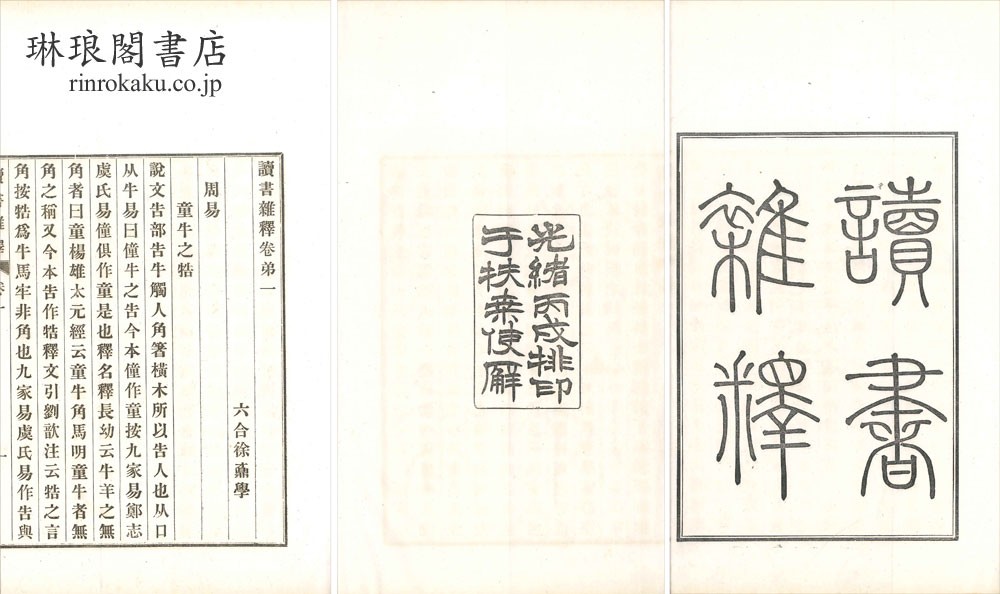 琳琅閣書店
rinrokaku.co.jp
讀書
雜釋
光緒丙戌排印
于扶桒使廨
讀書雜釋卷弟一
六合徐鼒學
周易
童牛之牿
說文告部告牛觸人角箸橫木所以告人也从口
从牛易曰僮牛之告今本僮作童按九家易鄭志
虞氏易僮俱作童是也釋名釋長幼云牛羊之無
角者曰童楊雄太元經云童牛角馬明童牛者無
角之稱又今本告作牿釋文引劉歆注云牿之言
角按牿爲牛馬牢非角也九家易虞氏易作告與